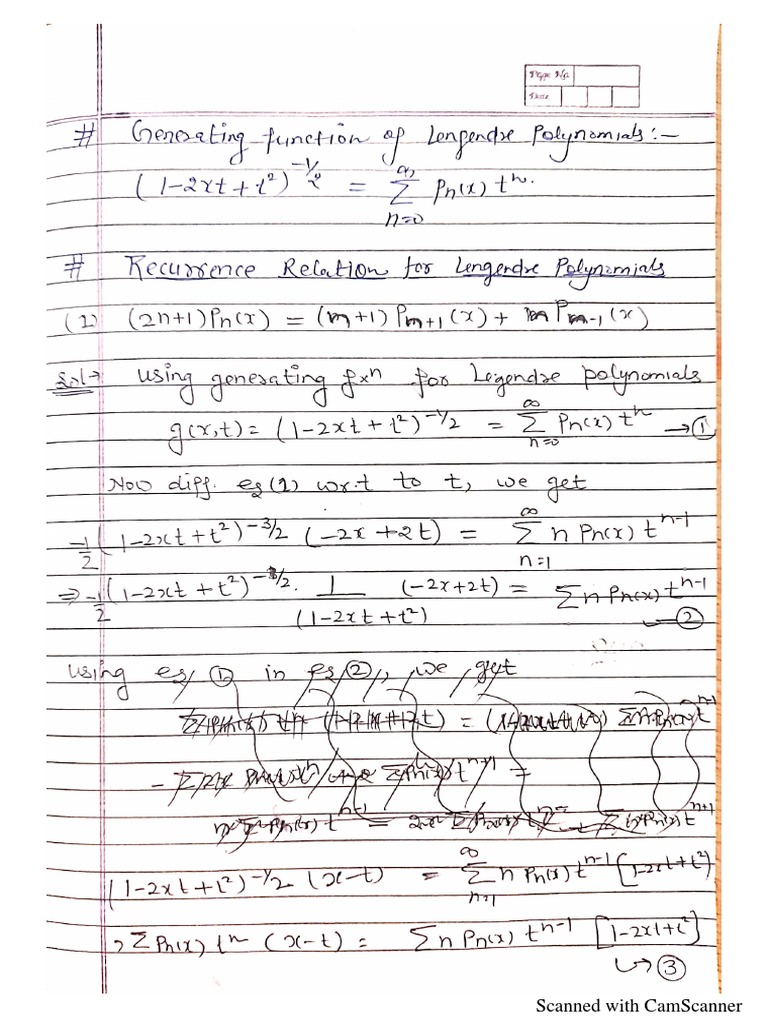 Page No.
Date
# Generating function of Lengendre Polynomials:-
(1-2xt+t²)^-1/2 = ∞ Σ n=0 Pn(x) t^n.
# Recurrence Relation for Lengendre Polynomials
(1) (2n+1)Pn(x) = (m+1) Pm+1(x) + mPm-1(x)
Sol→ Using generating fxn for Legendre polynomials
g(x,t) = (1-2xt+t²)^-1/2 = ∞ Σ n=0 Pn(x) t^n →①
Now diff. eq(1) w.r.t to t, we get
-1/2 (1-2xt+t²)^-3/2 (-2x+2t) = ∞ Σ n=1 n Pn(x) t^n-1
⇒ -1/2 (1-2xt+t²)^-1/2 . 1/(1-2xt+t²) (-2x+2t) = Σ n Pn(x) t^n-1 ②
using eq ① in eq ②, we get
(1-2xt+t²)^-1/2 (x-t) = ∞ Σ n=1 n Pn(x) t^n-1 [1-2xt+t²]
Σ Pn(x) t^n (x-t) = Σ n Pn(x) t^n-1 [1-2xt+t²]
↳③
Scanned with CamScanner